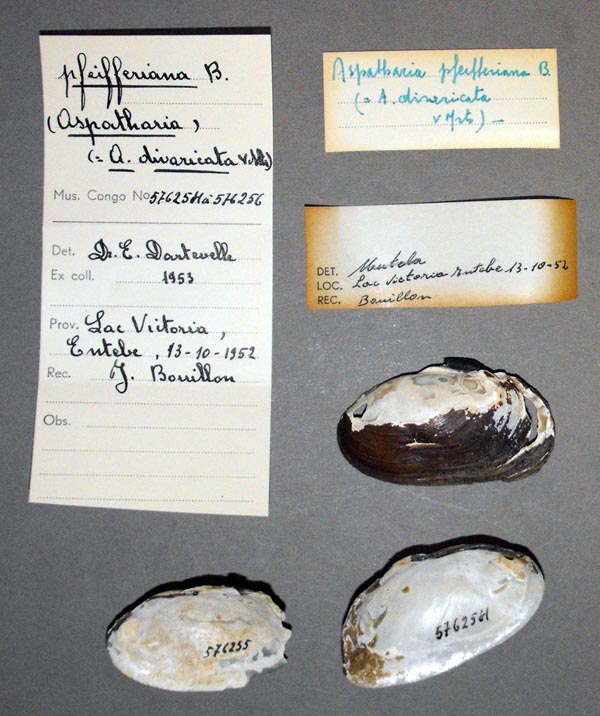 pfeifferiana B.
(Aspatharia,
(= A. divaricata v. Mts)
Mus. Congo No 576254 à 576256
Det. Dr. E. Dartevelle
Ex coll. 1953
Prov. Lac Victoria,
Entebe, 13-10-1952
Rec. J. Bouillon
Obs.
Aspatharia pfeifferiana B.
(= A. divaricata
v Mts) -
DET. Mutela
LOC. Lac Victoria Entebe 13-10-52
REC. Bouillon
576254
576255